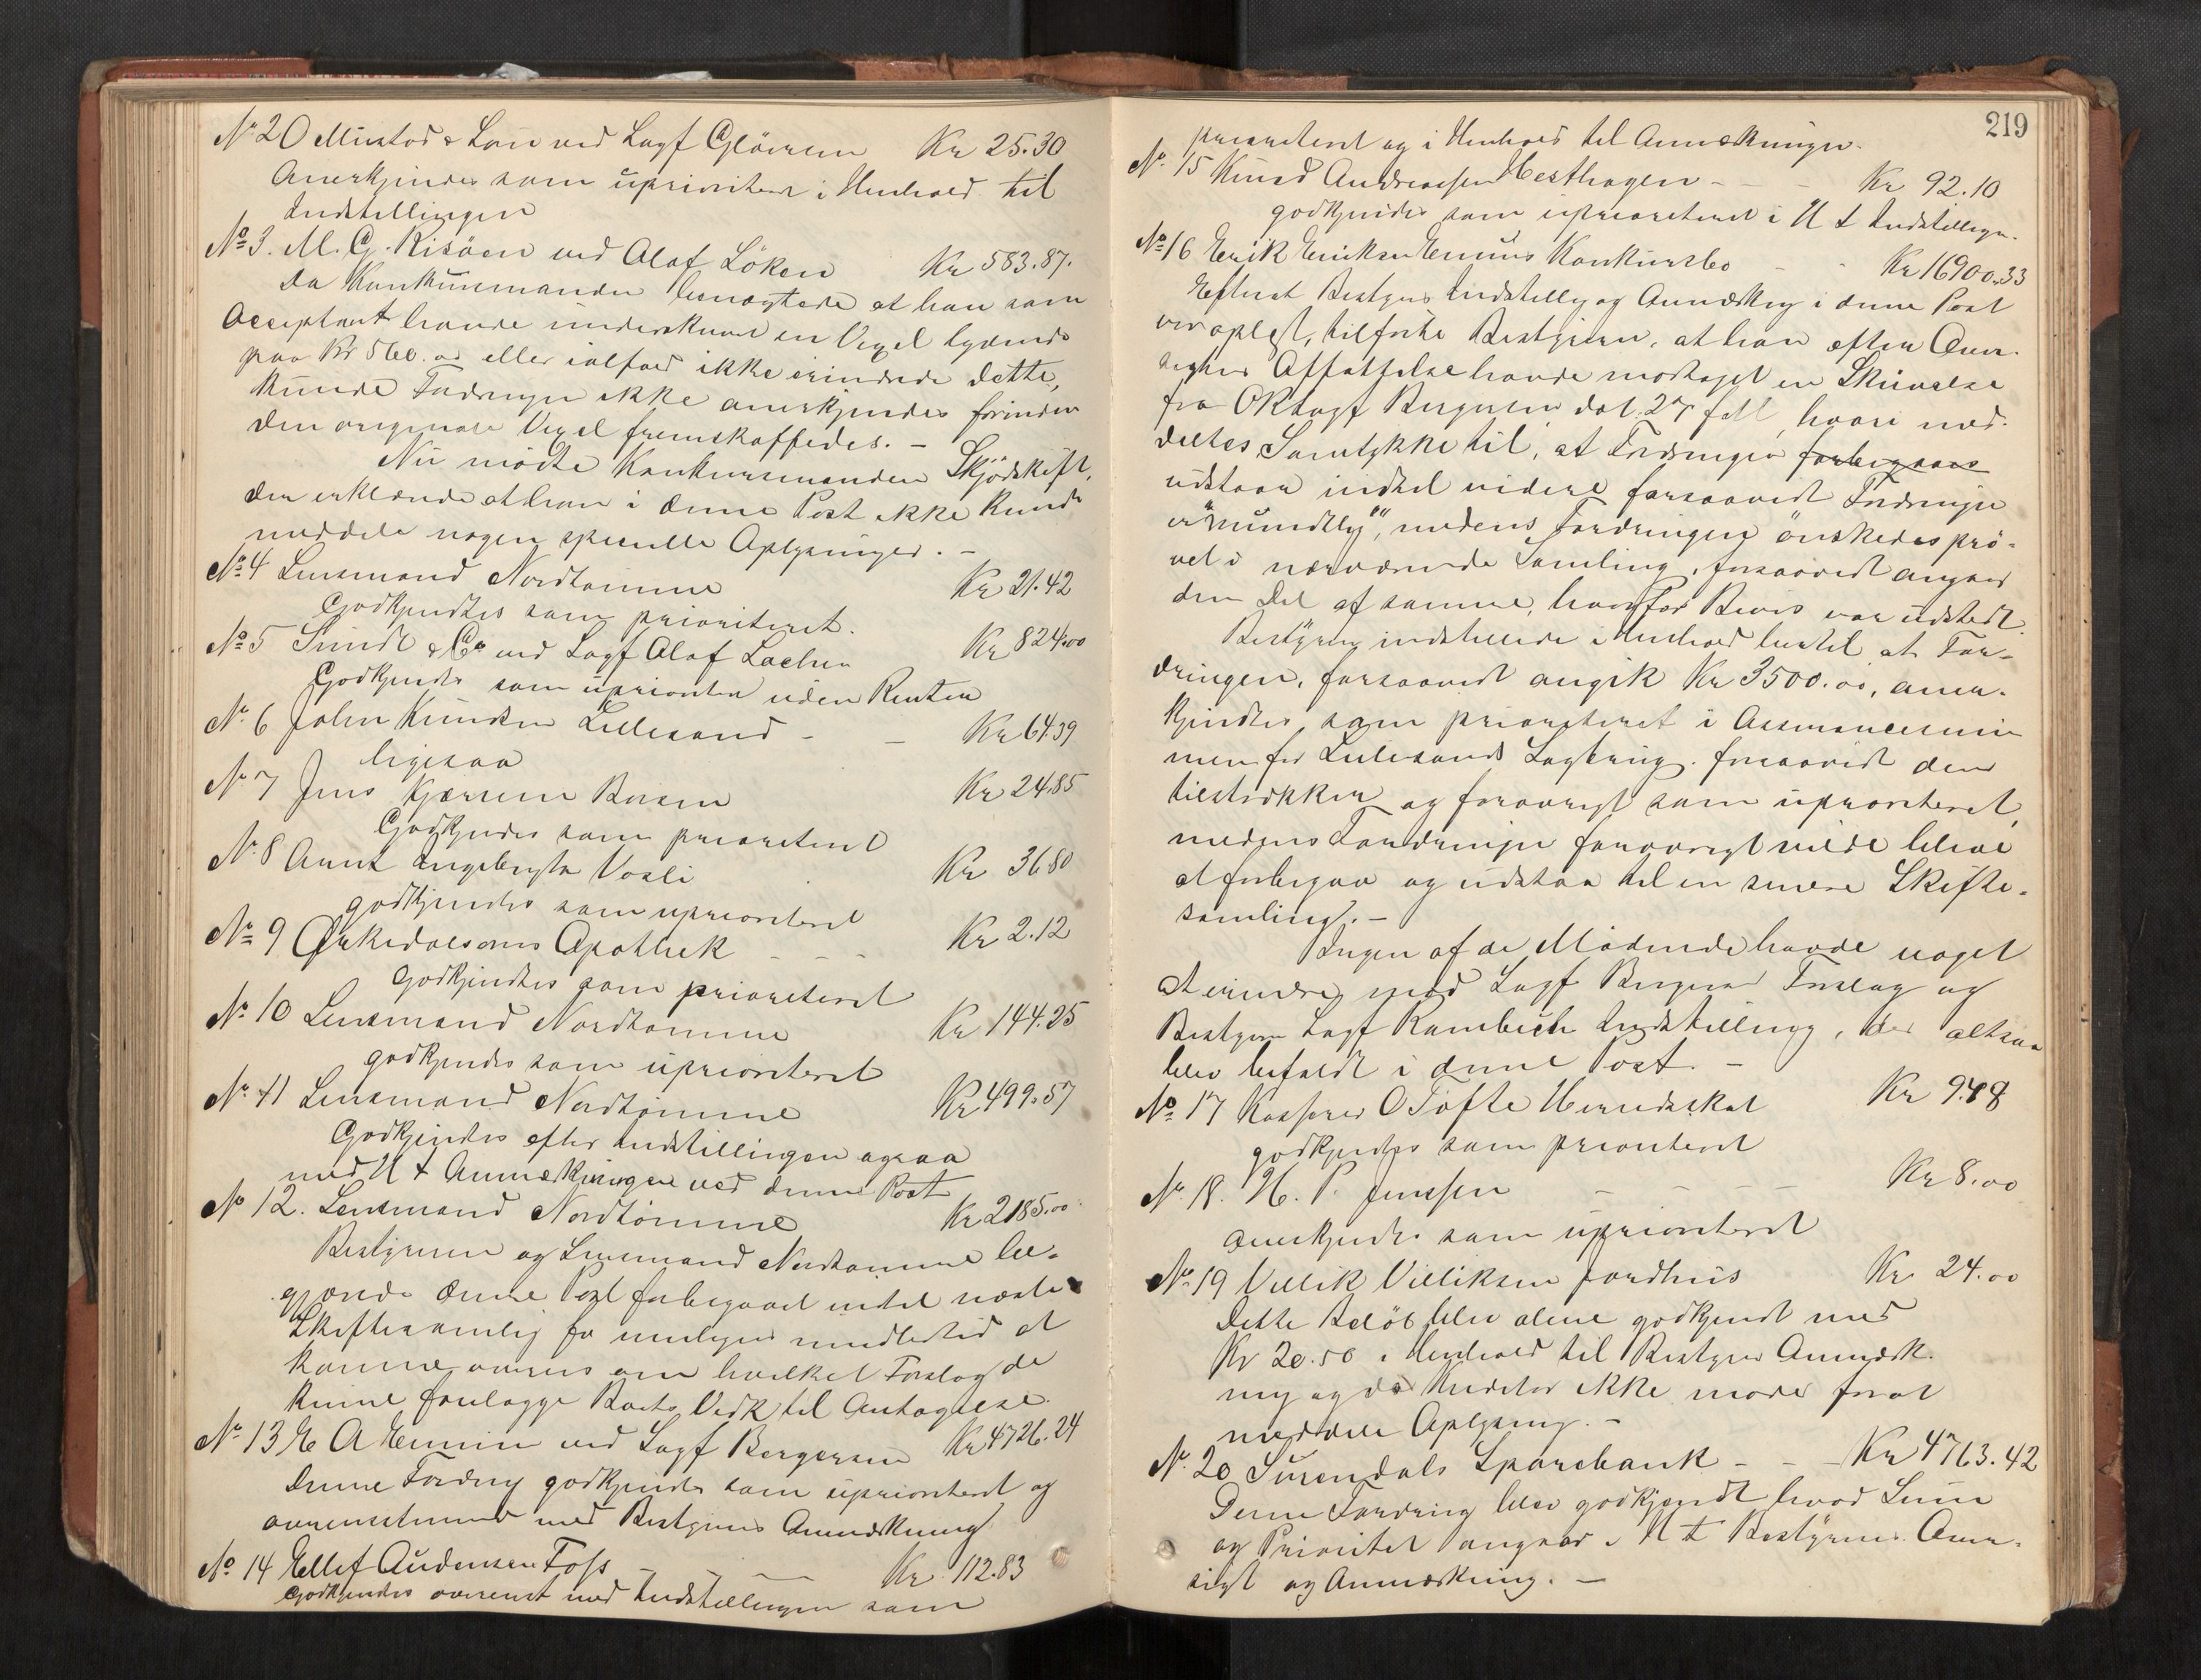 No 20 Mustad & Søn ved Sagf Gløersen Kr 25.30
Anerkjendes som uprioriteret i Henhold til
Indstillingen
No 3. M. G. Risöen ved Olaf Löken Kr 583.87.
Da Konkursmanden benegtede at han som
Acceptant havde underskrevet en Vexel lydende
paa Kr 560.00 eller ialfald ikke erindrede dette,
kunde Fordringen ikke anerkjendes forinden
den originale Vexel fremskaffedes. -
Nu mödte Konkursmanden Skjödskift,
der erklærede at han i denne Post ikke kunde
meddele nogen specielle Oplysninger. -
No 4 Lensmand Nordtömme Kr 21.42
Godkjendtes som prioriteret.
No 5 Sundt & Co ved Sagf Olaf Lachen Kr 824.00
Godkjendes som uprioriteret uden Renter
No 6 John Knudsen Lillesand - - Kr 64.39
ligesaa
No 7 Jens Kjærrem Boisen Kr 24.85
Godkjendes som prioriteret
No 8 Arnt Ingebrigtsen Vasli Kr 36.80
godkjendes som uprioriteret
No 9 Ørkedalsørens Apothek - - - Kr 2.12
Godkjendtes som prioriteret
No 10 Lensmand Nordtömme Kr 144.25
godkjendes som uprioriteret
No 11 Lensmand Nordtömme Kr 499.57
Godkjendes efter Indstillingen ogsaa
med H t Anmærkningen ved denne Post
No 12. Lensmand Nordtömme Kr 2185.00
Bestyreren og Lensmand Nordtömme be-
gjærede denne Post forbigaaet indtil næste
Skiftesamling for muligens imidlertid at
komme overens om hvilket Forslag de
kunne forelægge Boets Vedk til Antagelse.
No 13 E A Emun ved Sagf Bergersen Kr 4726.24
Denne Fordring godkjendes som uprioriteret og
overensstemmende med Bestyrerens Anmærkning
No 14 Ellef Audensen Foss - - - Kr 112.83
Godkjendes overenst med Indstillingen som
219
prioriteret og i Henhold til Anmærkningen.
No 15 Knud Andreassen Hesthagen - - - Kr 92.10
godkjendes som uprioriteret i H t Indstillingen.
No 16 Erik Eriksen Emuns Konkursbo - - Kr 16900.33
Efterat Bestyrers Indstilling og Anmærkng i denne Post
var oplæst, tilföiede Bestyreren, at han efter Over-
sigtens Affattelse havde modtaget en Skrivelse
fra ORsagf Bergersen dat. 27 ds, hvori med-
deltes Samtykke til, at Fordringen forbigaaes
udstaar indtil videre forsaavidt Fordringen
er "mundtlig", medens Fordringen önskedes prö-
vet i nærværende Samling, forsaavidt angaar
den Del af samme, hvorfor Bevis var udstedt.
Bestyreren indstillede i Henhold hertil at For-
dringen, forsaavidt angik Kr 3500.00, aner-
kjendtes som prioriteret i Assurancesum-
men for Lillesands Sagbrug. forsaavidt den
tilstrækker og forövrigt som uprioriteret,
medens Fordringen forövrigt vilde blive
at forbigaa og udstaa til en senere Skifte-
samling. -
Ingen af de Mödende havde noget
at erindre mod Sagf Bergersens Forslag og
Bestyrer Sagf Rambech Indstilling, der altsaa
blev bifaldt i denne Post. -
No 17 Kasserer O Tofte Herredsskat Kr 9.48
godkjendtes som prioriteret
No 18. H. P. Jenssen - - - - Kr 8.00
anerkjendes som uprioriteret
No 19 Villik Villiksen Jordhus Kr 24.00
Dette Belöb blev alene godkjendt med
Kr 20.50 i Henhold til Bestyrers Anmærk-
ning og da Kreditor ikke möder forat
meddele Oplysning. -
No 20 Surendals Sparebank - - - Kr 4763.42
Denne Fordring blev godkjendt hvad Sum
og Prioritet angaar i H t Bestyrerens Over-
sigt og Anmærkning. -